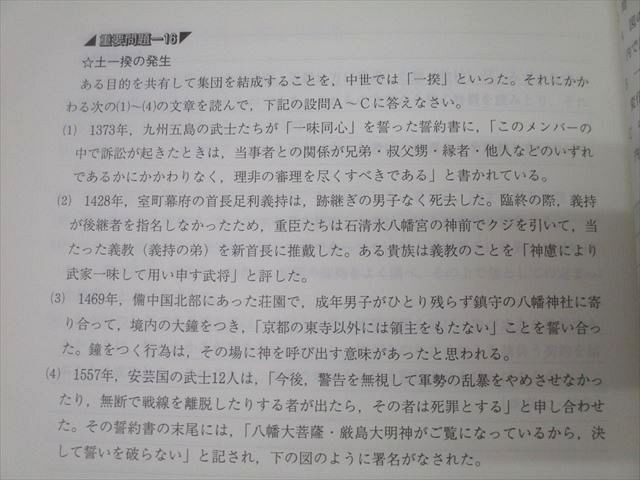 重要問題―16
☆土一揆の発生
ある目的を共有して集団を結成することを，中世では「一揆」といった。それにかか
わる次の(1)～(4)の文章を読んで，下記の設問A～Cに答えなさい。
(1) 1373年，九州五島の武士たちが「一味同心」を誓った誓約書に，「このメンバーの
中で訴訟が起きたときは，当事者との関係が兄弟・叔父甥・縁者・他人などのいずれ
であるかにかかわりなく，理非の審理を尽くすべきである」と書かれている。
(2) 1428年，室町幕府の首長足利義持は，跡継ぎの男子なく死去した。臨終の際，義持
が後継者を指名しなかったため，重臣たちは石清水八幡宮の神前でクジを引いて，当
たった義教（義持の弟）を新首長に推戴した。ある貴族は義教のことを「神慮により
武家一味して用い申す武将」と評した。
(3) 1469年，備中国北部にあった荘園で，成年男子がひとり残らず鎮守の八幡神社に寄
り合って，境内の大鐘をつき，「京都の東寺以外には領主をもたない」ことを誓い合っ
た。鐘をつく行為は，その場に神を呼び出す意味があったと思われる。
(4) 1557年，安芸国の武士12人は，「今後，警告を無視して軍勢の乱暴をやめさせなかっ
たり，無断で戦線を離脱したりする者が出たら，その者は死罪とする」と申し合わせ
た。その誓約書の末尾には，「八幡大菩薩・厳島大明神がご覧になっているから，決
して誓いを破らない」と記され，下の図のように署名がなされた。